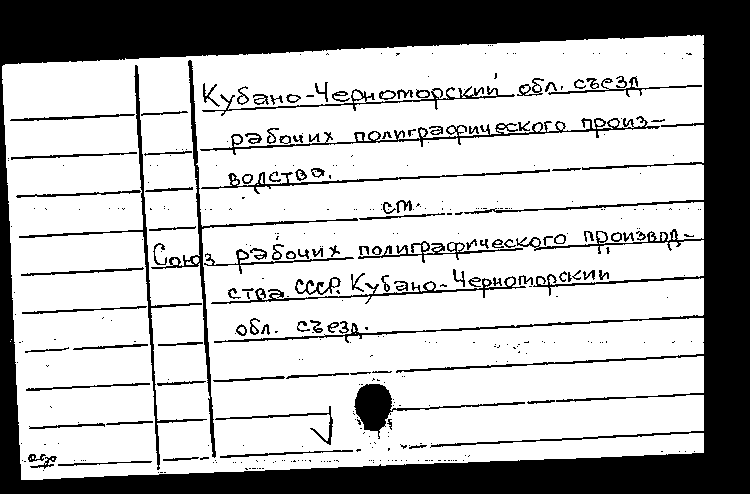 Кубано-Черноморский обл. съезд
рабочих полиграфического произ-
водства.
см.
Союз рабочих полиграфического производ-
ства СССР. Кубано-Черноморский
обл. съезд.